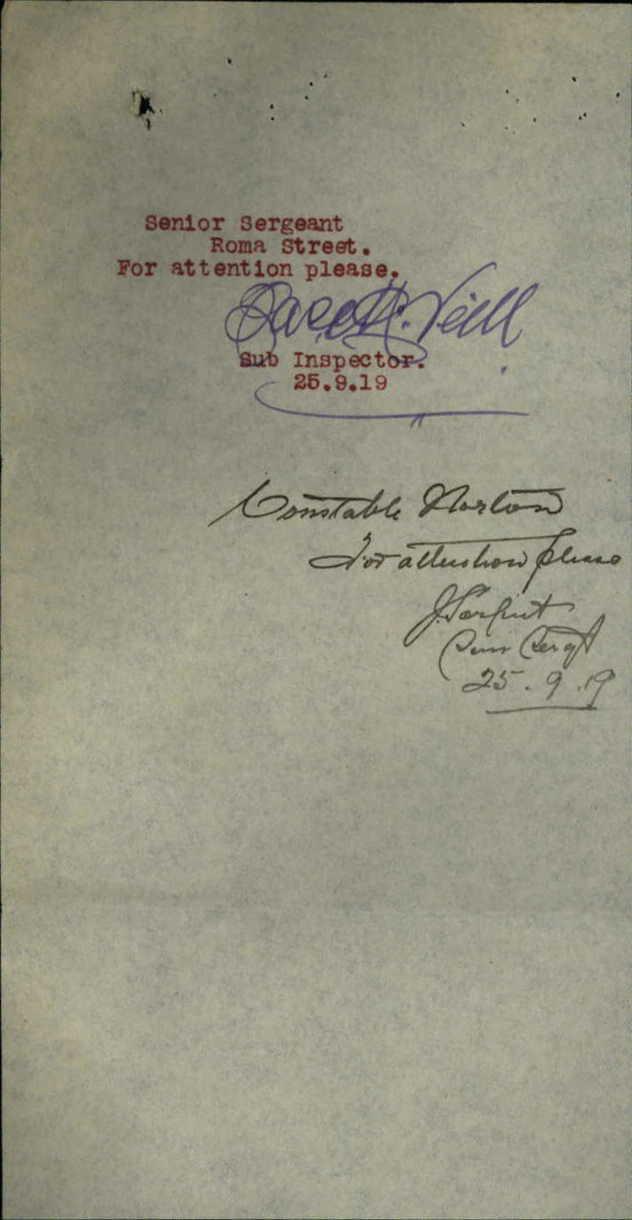 Senior Sergeant
Roma Street.
For attention please.
Sub Inspector.
25.9.19
Constable Norton
For attention please
Sergt
25.9.19